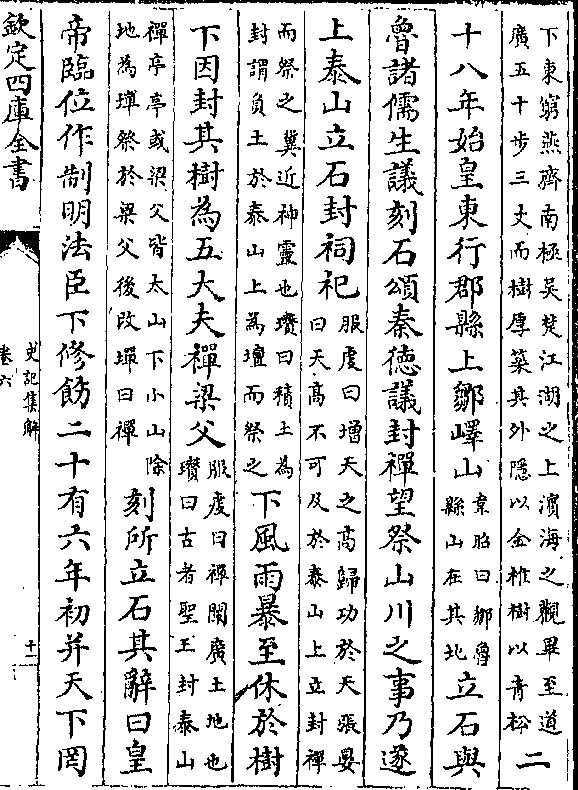 下東窮燕齊南極吳楚江湖之上濵海之觀畢至道
廣五十步三丈而樹厚築其外隱以金椎樹以青松
二
十八年始皇東行郡縣上鄒嶧山
韋昭曰鄒魯
縣山在其地
立石與
魯諸儒生議刻石頌秦德議封禪望祭山川之事乃遂
上泰山立石封祠祀
服虔曰增天之高歸功於天張晏
曰天高不可及於泰山上立封禪
而祭之冀近神靈也瓚曰積土為
封謂負土於泰山上為壇而祭之
下風雨暴至休於樹
下因封其樹為五大夫禪梁父
服虔曰禪闡廣土地也
瓚曰古者聖王封泰山
禪亭亭或梁父皆太山下小山除
地為墠祭於梁父後改墠曰禪
刻所立石其辭曰皇
帝臨位作制明法臣下修飭二十有六年初并天下罔
欽定四庫全書
史記集解
卷六
十二